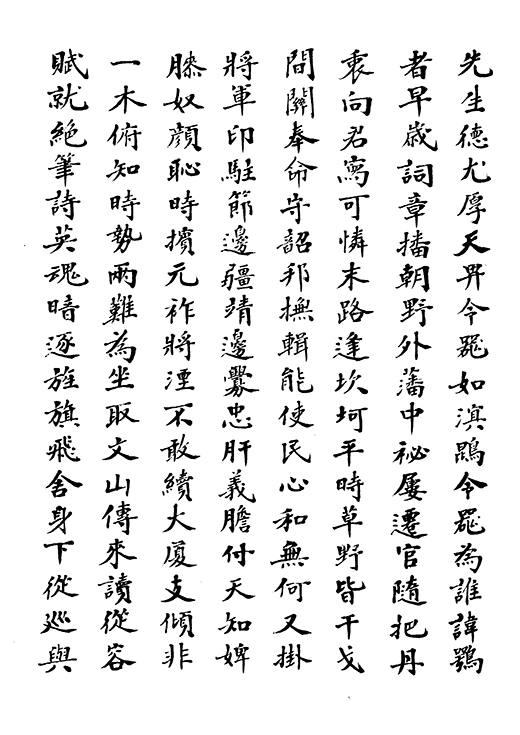 先生德尤厚天畀令器如溟鵾令器為誰諱鶚
者早歲詞章播朝野外藩中祕屢遷官隨把丹
衷向君寫可憐末路逢坎坷平時草野皆干戈
間關奉命守韶邦撫輯能使民心和無何又掛
將軍印駐節邊疆靖邊釁忠肝義膽付天知婢
膝奴顏恥時擯元祚將湮不敢續大廈支傾非
一木俯知時勢兩難為坐取文山傳來讀從容
賦就絕筆詩英魂暗逐旌旗飛舍身下從巡與